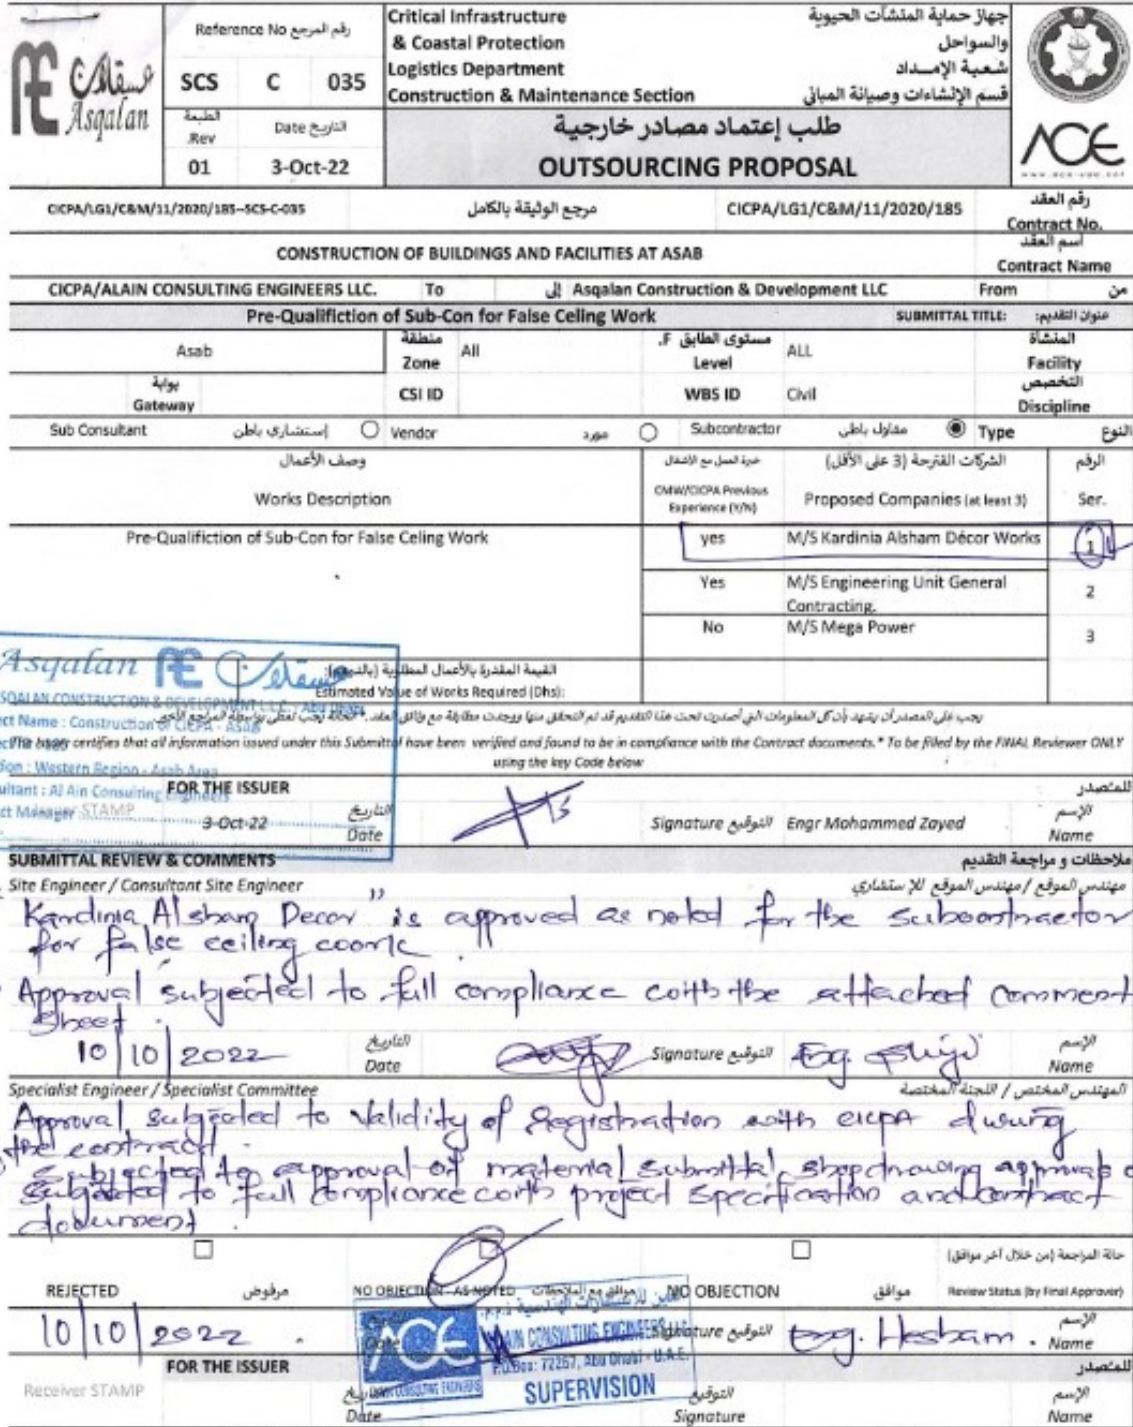 Asqalan
عسقلان
Reference No رقم المرجع
SCS C 035
الطبعة
Rev.
Date التاريخ
01 3-Oct-22
Critical Infrastructure
& Coastal Protection
Logistics Department
Construction & Maintenance Section
جهاز حماية المنشآت الحيوية
والسواحل
شعبية الإمـداد
قسم الإنشاءات وصيانة المباني
طلب إعتماد مصادر خارجية
OUTSOURCING PROPOSAL
ACE
CICPA/LG1/C&M/11/2020/185--SCS-C-035 مرجع الوثيقة بالكامل CICPA/LG1/C&M/11/2020/185 رقم العقد
Contract No.
CONSTRUCTION OF BUILDINGS AND FACILITIES AT ASAB اسم العقد
Contract Name
CICPA/ALAIN CONSULTING ENGINEERS LLC. To إلى Asqalan Construction & Development LLC From من
Pre-Qualifiction of Sub-Con for False Celing Work SUBMITTAL TITLE: عنوان التقديم:
Asab منطقة Zone All مستوى الطابق F. Level ALL المنشأة
Facility
بوابة Gateway CSI ID WBS ID Civil التخصص
Discipline
Sub Consultant إستشاري باطن Vendor مورد Subcontractor مقاول باطن Type النوع
وصف الأعمال
Works Description
CMW/CICPA Previous
Experience (Y/N)
الشركات المقترحة (3 على الأقل)
Proposed Companies (at least 3)
الرقم
Ser.
Pre-Qualifiction of Sub-Con for False Celing Work yes M/S Kardinia Alsham Décor Works 1
Yes M/S Engineering Unit General
Contracting. 2
No M/S Mega Power 3
Asqalan
ASQALAN CONSTRUCTION & DEVELOPMENT L.L.C. / Abu Dhabi
القيمة المقدرة بالأعمال المطلوبة
Estimated Value of Works Required (Dhs):
ect Name : Construction of CICPA - ASAB
certifies that all information issued under this Submittal have been verified and found to be in compliance with the Contract documents.* To be filled by the FINAL Reviewer ONLY
using the key Code below
Western Region - Asab Area
ultant : Al Ain Consulting Engineers
ct Manager
FOR THE ISSUER
للمتصدر
STAMP 3-Oct-22 التاريخ
Date
Signature التوقيع Engr Mohammed Zayed الإسم
Name
SUBMITTAL REVIEW & COMMENTS ملاحظات و مراجعة التقديم
Site Engineer / Consultant Site Engineer مهندس الموقع / مهندس الموقع للإستشاري
Kardinia Alsham Decor" is approved as noted for the subcontractor
for false ceiling work.
Approval subjected to full compliance with the attached comment
sheet.
10/10/2022 التاريخ
Date
Signature التوقيع Eng. الإسم
Name
Specialist Engineer / Specialist Committee المهندس المختص / اللجنة المختصة
Approval subjected to validity of Registration with CICPA during
the contract.
subjected to approval of material submittal, shop drawing approvals
subjected to full compliance with project specification and contract
document.
حالة المراجعة (من خلال آخر موافق)
REJECTED مرفوض NO OBJECTION - AS NOTED موافق مع الملاحظات NO OBJECTION موافق Review Status (by Final Approver)
10/10/2022 Date Signature التوقيع Eng. Hesham. الإسم
Name
ACE
AL AIN CONSULTING ENGINEERS
P.O.Box: 72267, Abu Dhabi - U.A.E.
SUPERVISION
FOR THE ISSUER للمتصدر
Receiver STAMP Date التوقيع
Signature
الإسم
Name